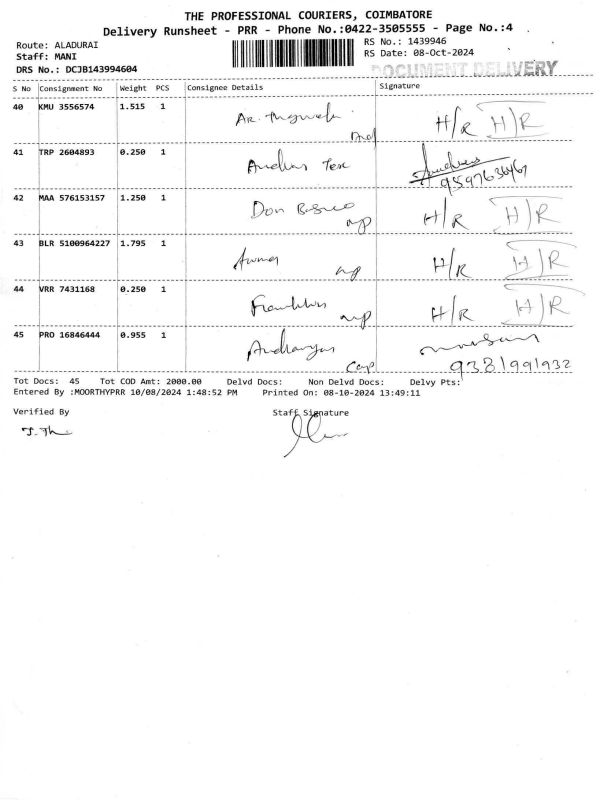 THE PROFESSIONAL COURIERS, COIMBATORE
Delivery Runsheet - PRR - Phone No.:0422-3505555 - Page No.:4
Route: ALADURAI RS No.: 1439946
Staff: MANI RS Date: 08-Oct-2024
DRS No.: DCJB143994604 DOCUMENT DELIVERY
S No Consignment No Weight PCS Consignee Details Signature
40 KMU 3556574 1.515 1 H/R H/R
41 TRP 2604893 0.250 1
42 MAA 576153157 1.250 1 Don Bosco H/R H/R
43 BLR 5100964227 1.795 1 H/R H/R
44 VRR 7431168 0.250 1 H/R H/R
45 PRO 16846444 0.955 1
9381991932
Tot Docs: 45 Tot COD Amt: 2000.00 Delvd Docs: Non Delvd Docs: Delvy Pts:
Entered By :MOORTHYPRR 10/08/2024 1:48:52 PM Printed On: 08-10-2024 13:49:11
Verified By Staff Signature